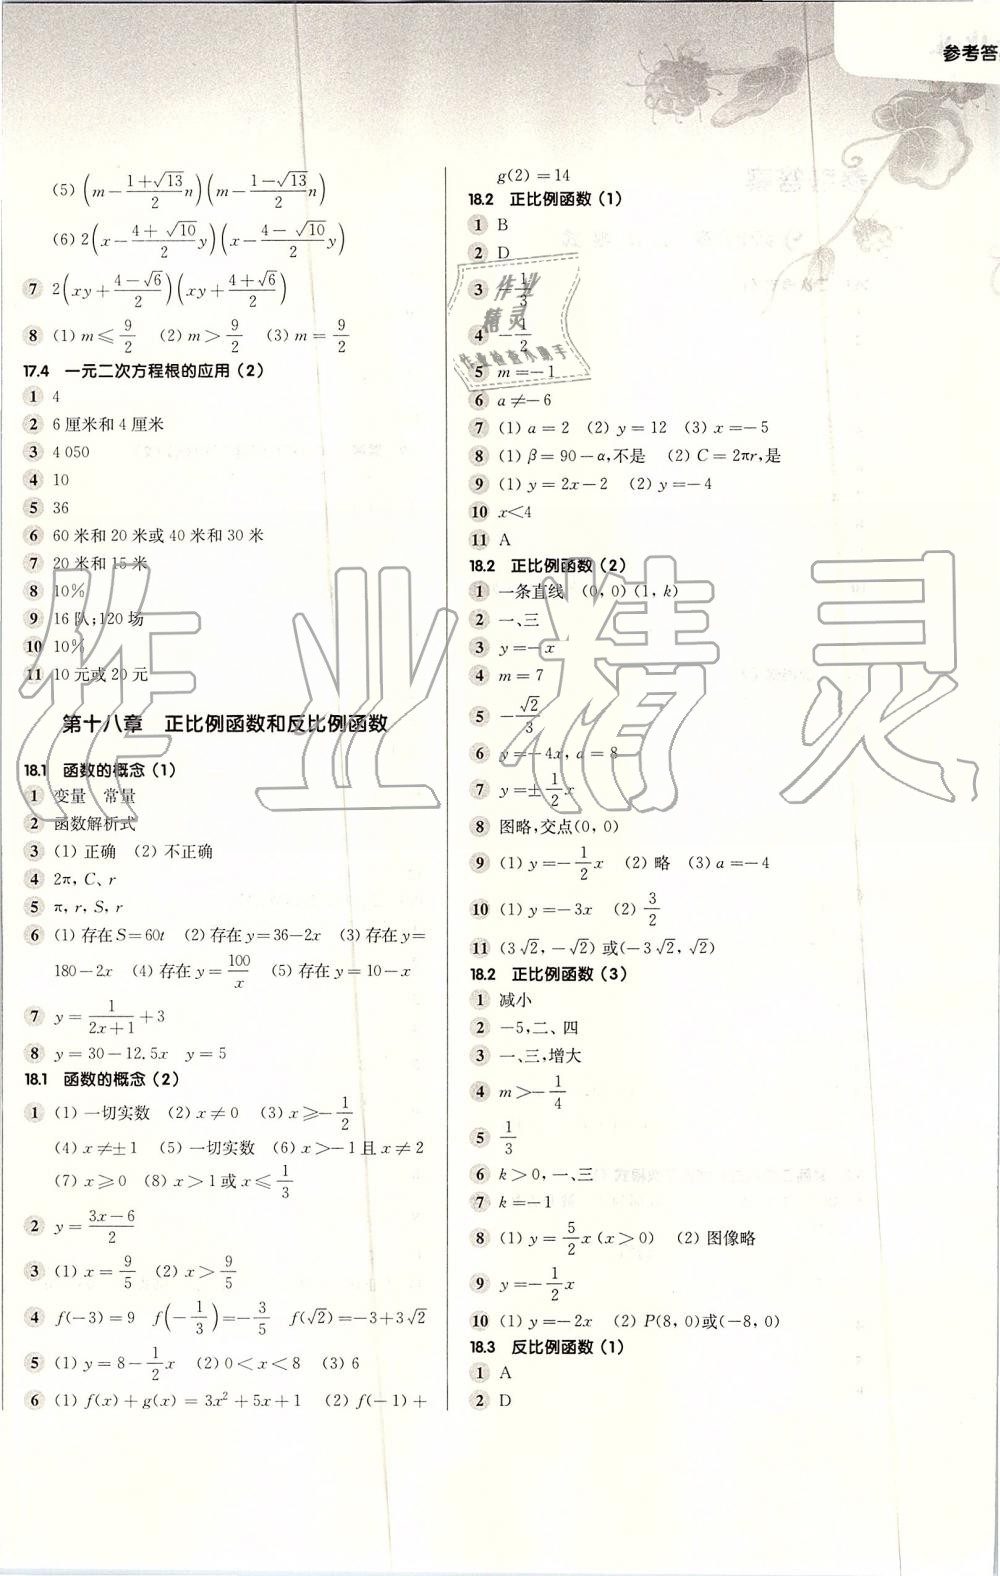 参考答
(5) (m－(1＋√13)/2 n)(m－(1－√13)/2 n)
(6) 2(x－(4＋√10)/2 y)(x－(4－√10)/2 y)
7 2(xy＋(4－√6)/2)(xy＋(4＋√6)/2)
8 (1) m≤9/2 (2) m＞9/2 (3) m＝9/2
17.4 一元二次方程根的应用(2)
1 4
2 6厘米和4厘米
3 4 050
4 10
5 36
6 60米和20米或40米和30米
7 20米和15米
8 10%
9 16队;120场
10 10%
11 10元或20元
第十八章 正比例函数和反比例函数
18.1 函数的概念(1)
1 变量 常量
2 函数解析式
3 (1) 正确 (2) 不正确
4 2π, C、r
5 π, r, S, r
6 (1) 存在S＝60t (2) 存在y＝36－2x (3) 存在y＝
180－2x (4) 存在y＝100/x (5) 存在y＝10－x
7 y＝1/(2x＋1)＋3
8 y＝30－12.5x y＝5
18.1 函数的概念(2)
1 (1) 一切实数 (2) x≠0 (3) x≥－1/2
(4) x≠±1 (5) 一切实数 (6) x＞－1且x≠2
(7) x≥0 (8) x＞1或x≤1/3
2 y＝(3x－6)/2
3 (1) x＝9/5 (2) x＞9/5
4 f(－3)＝9 f(－1/3)＝－3/5 f(√2)＝－3＋3√2
5 (1) y＝8－1/2 x (2) 0＜x＜8 (3) 6
6 (1) f(x)＋g(x)＝3x²＋5x＋1 (2) f(－1)＋
g(2)＝14
18.2 正比例函数(1)
1 B
2 D
3 －1/3
4 －1/2
5 m＝－1
6 a≠－6
7 (1) a＝2 (2) y＝12 (3) x＝－5
8 (1) β＝90－α,不是 (2) C＝2πr,是
9 (1) y＝2x－2 (2) y＝－4
10 x＜4
11 A
18.2 正比例函数(2)
1 一条直线 (0, 0) (1, k)
2 一、三
3 y＝－x
4 m＝7
5 －√2/3
6 y＝－4x, a＝8
7 y＝±1/2 x
8 图略,交点(0, 0)
9 (1) y＝－1/2 x (2) 略 (3) a＝－4
10 (1) y＝－3x (2) 3/2
11 (3√2, －√2)或(－3√2, √2)
18.2 正比例函数(3)
1 减小
2 －5,二、四
3 一、三,增大
4 m＞－1/4
5 1/3
6 k＞0,一、三
7 k＝－1
8 (1) y＝5/2 x (x＞0) (2) 图像略
9 y＝－1/2 x
10 (1) y＝－2x (2) P(8, 0)或(－8, 0)
18.3 反比例函数(1)
1 A
2 D
作业
精灵
作业检查小助手
作业精灵